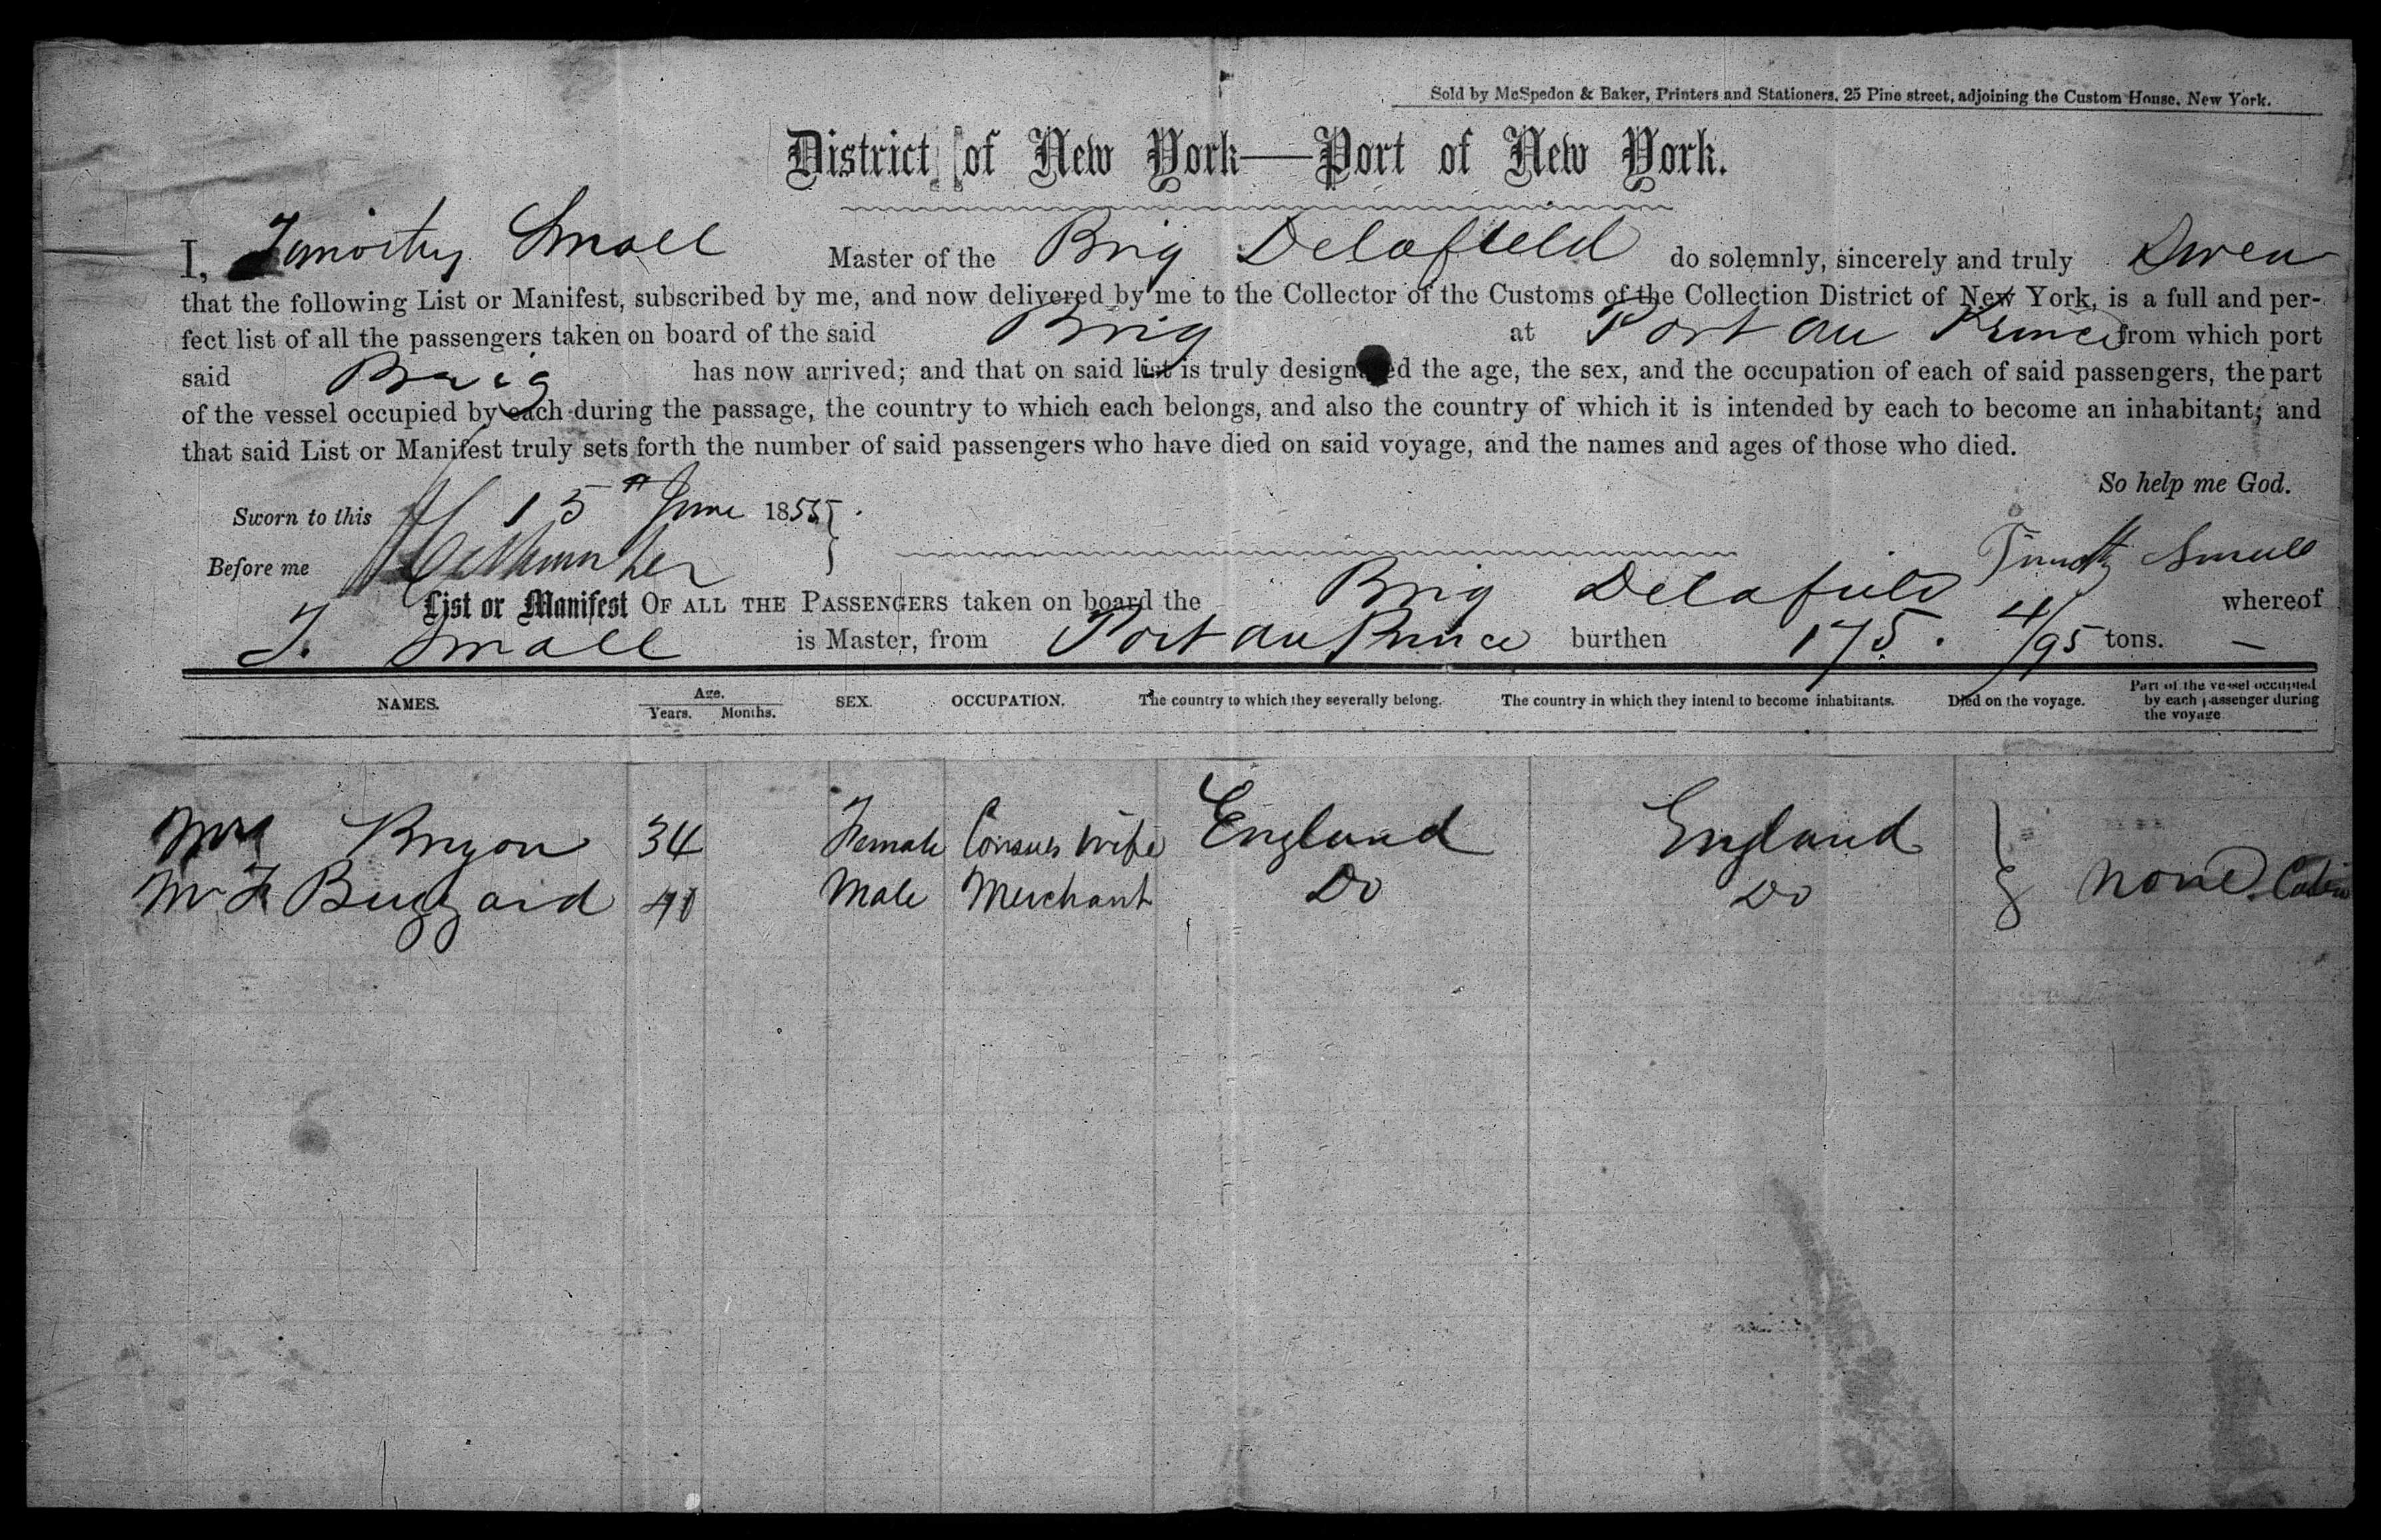 Sold by McSpedon & Baker, Printers and Stationers, 25 Pine street, adjoining the Custom House, New York.
District of New York—Port of New York.
I, Timothy Small Master of the Brig Delafield do solemnly, sincerely and truly Swear
that the following List or Manifest, subscribed by me, and now delivered by me to the Collector of the Customs of the Collection District of New York, is a full and per-
fect list of all the passengers taken on board of the said Brig at Port au Prince from which port
said Brig has now arrived; and that on said list is truly designated the age, the sex, and the occupation of each of said passengers, the part
of the vessel occupied by each during the passage, the country to which each belongs, and also the country of which it is intended by each to become an inhabitant; and
that said List or Manifest truly sets forth the number of said passengers who have died on said voyage, and the names and ages of those who died.
So help me God.
Sworn to this 15th June 1855
Before me
Timothy Small
List or Manifest OF ALL THE PASSENGERS taken on board the Brig Delafield whereof
T. Small is Master, from Port au Prince burthen 175. 4/95 tons. —
NAMES. Age. Years. Months. SEX. OCCUPATION. The country to which they severally belong. The country in which they intend to become inhabitants. Died on the voyage. Part of the vessel occupied by each passenger during the voyage
Mrs Bryon 34 Female Consuls Wife England England
Mr Buzzard Male Merchant Do Do none Cabin